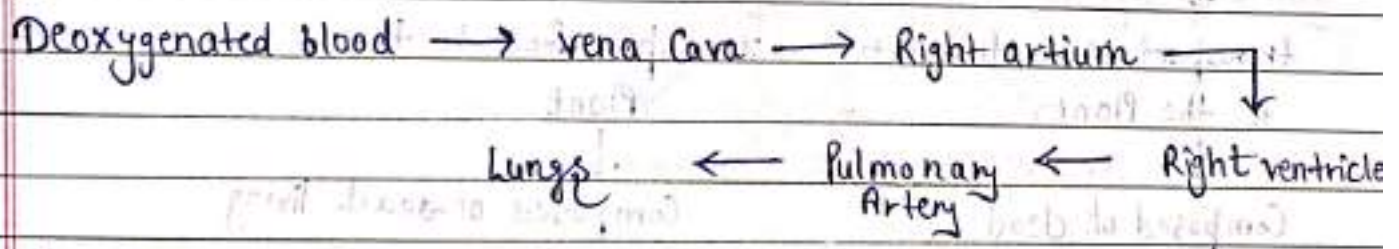 Deoxygenated blood → vena Cava → Right artium
Lungs ← Pulmonary Artery ← Right ventricle